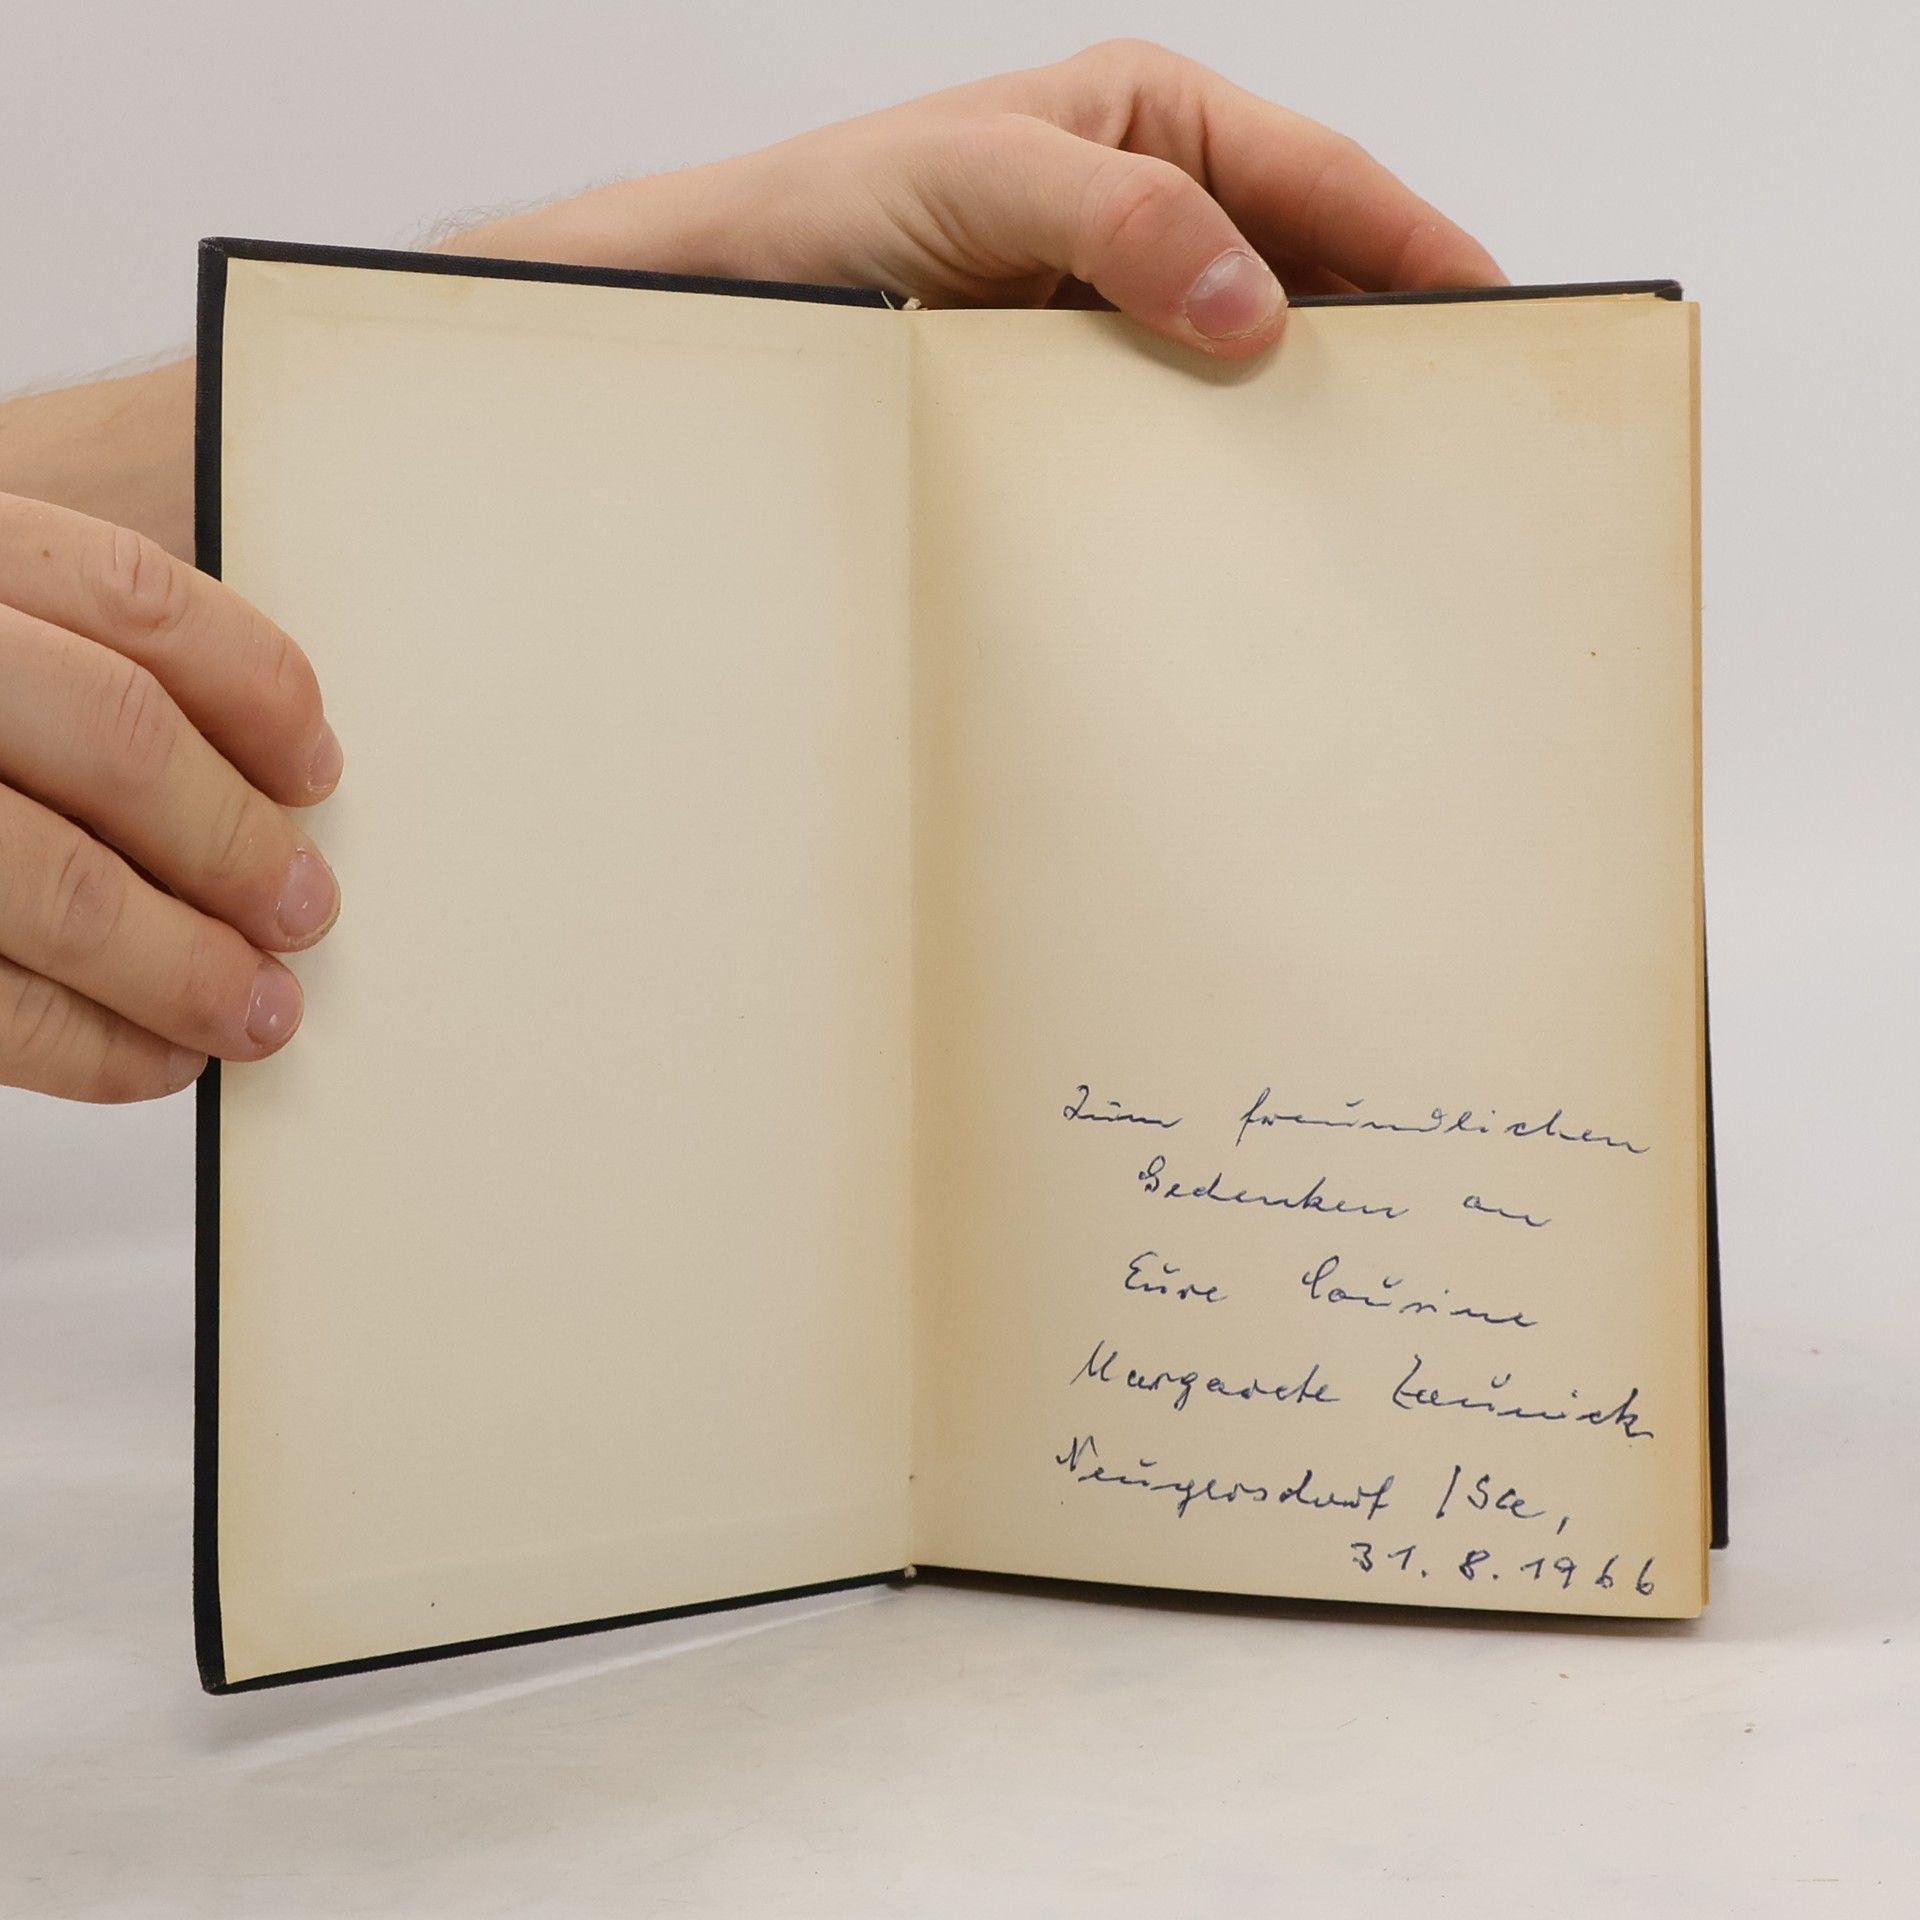 Zum freundlichen
Gedenken an
Eure Cousine
Margarete Zaunick
Neugersdorf / Sa,
31. 8. 1966